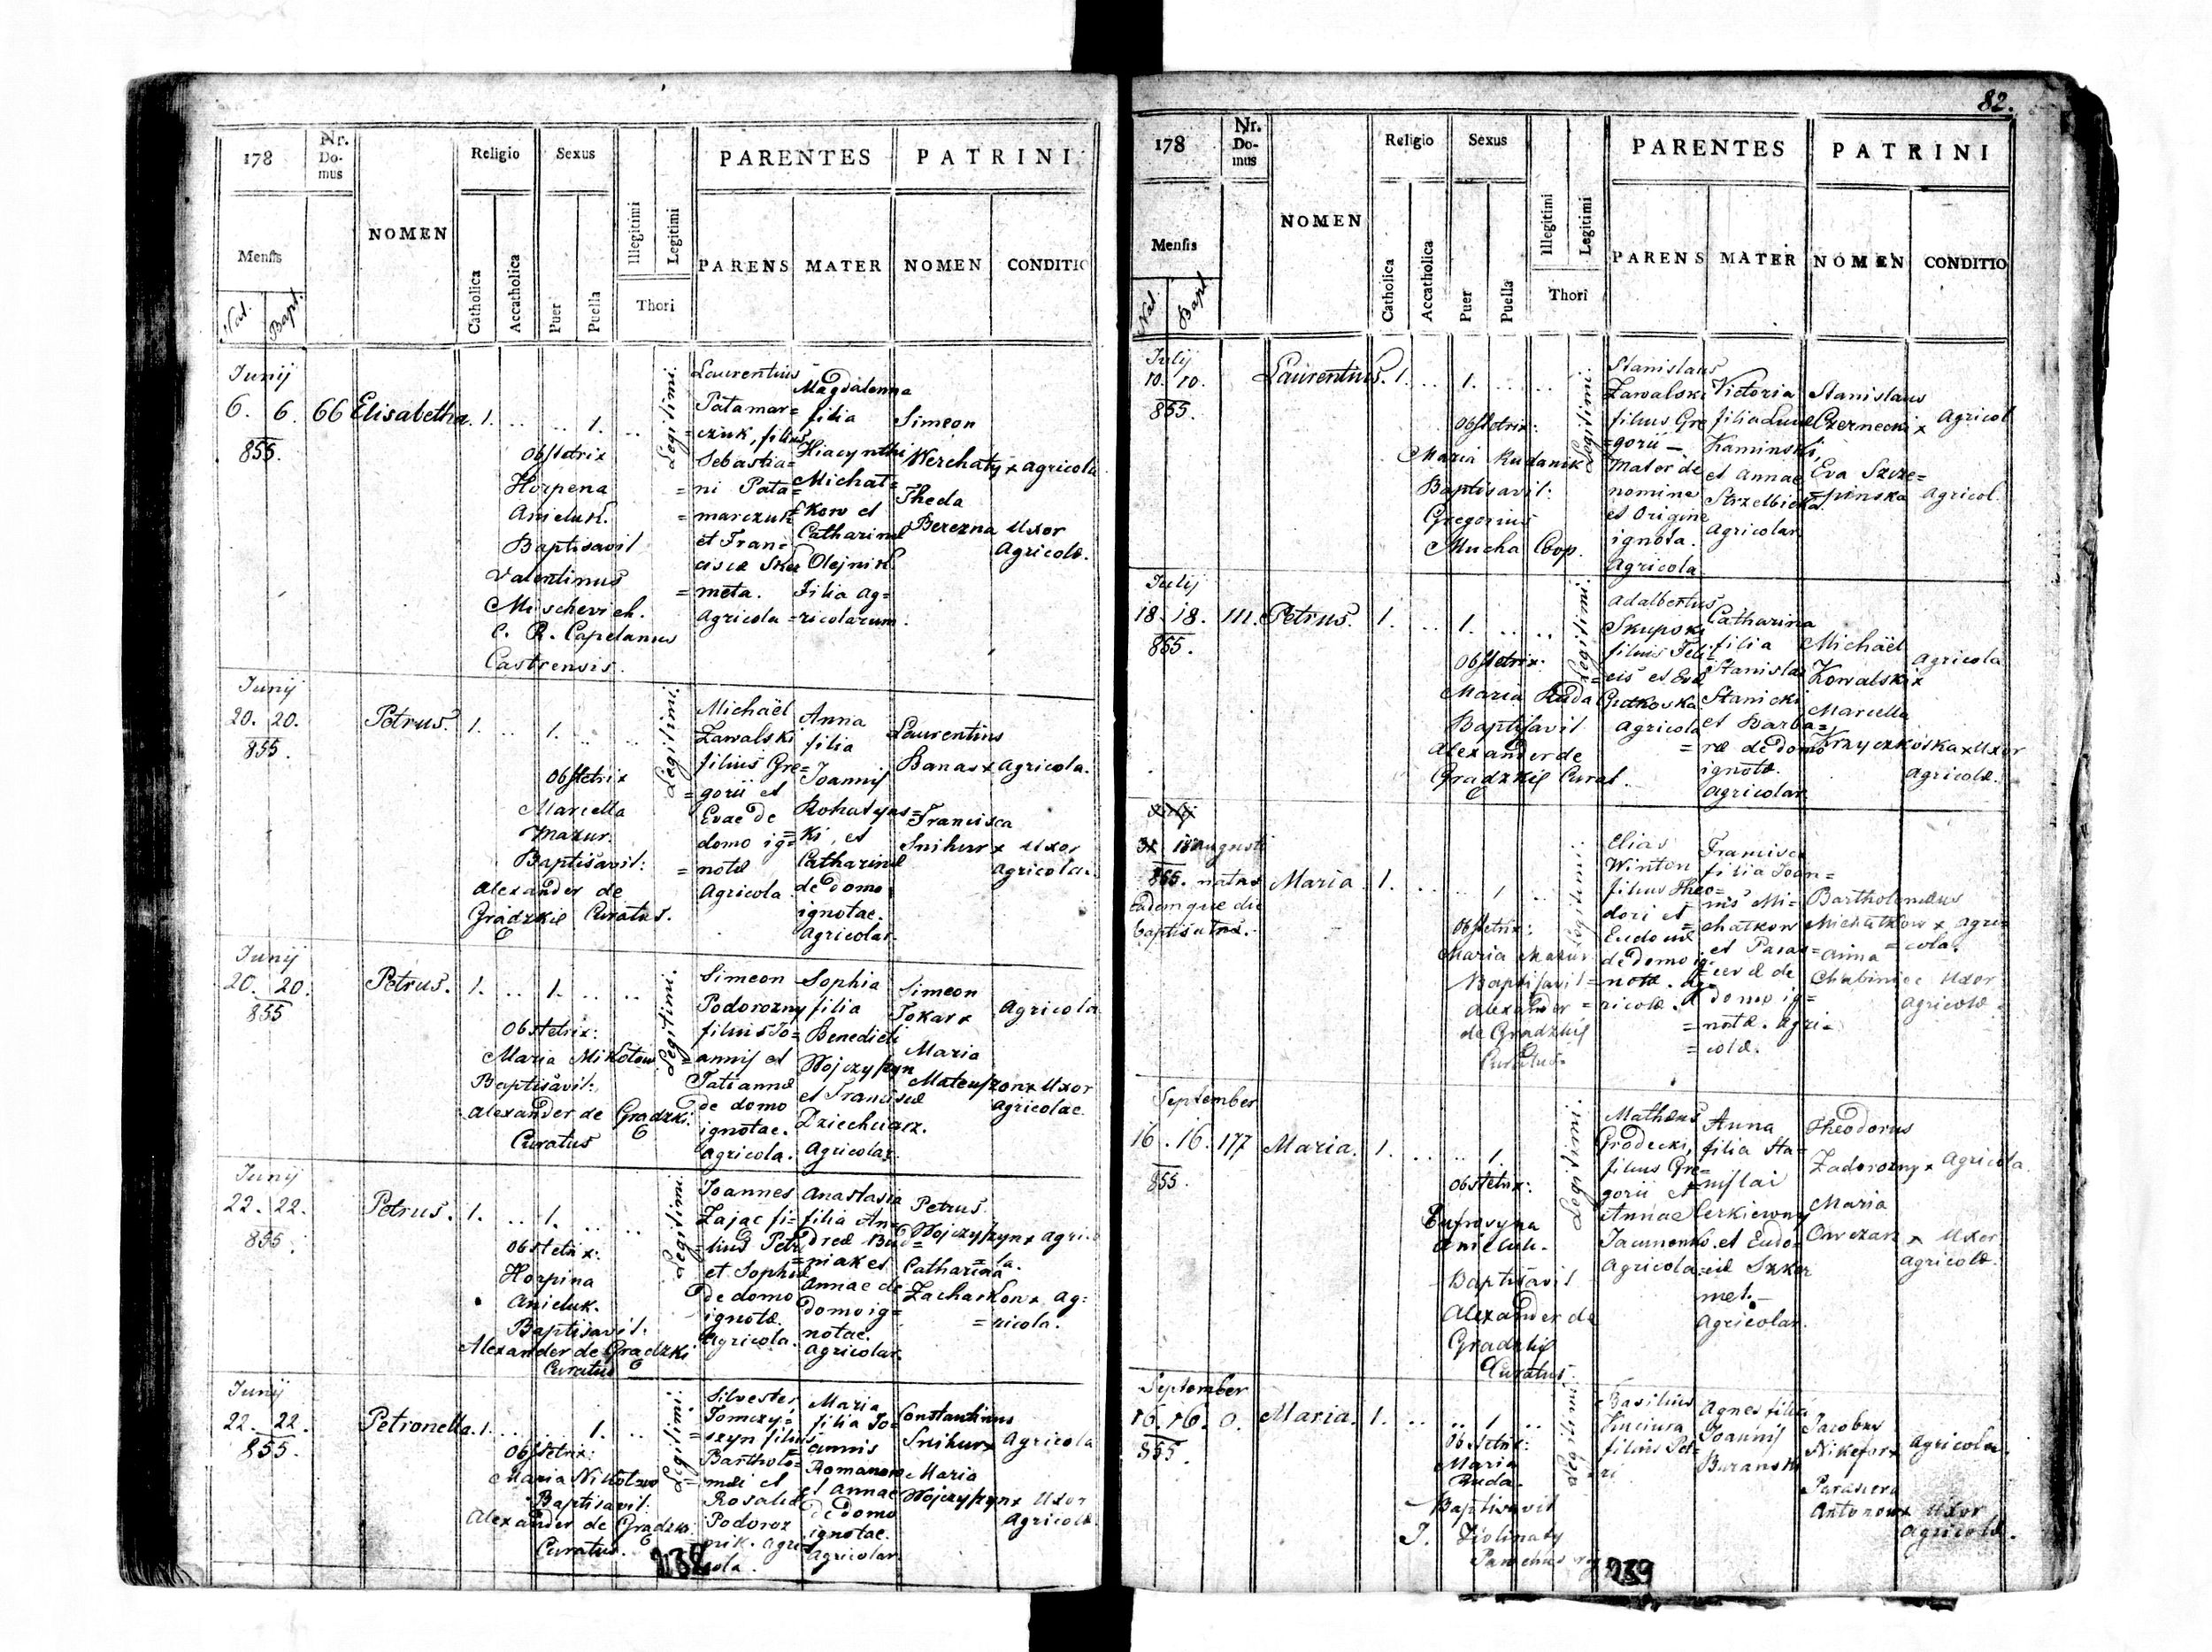 178
Nr.
Do-
mus
NOMEN
Religio
Sexus
PARENTES
PATRINI
Mensis
Nat.
Bapt.
Catholica
Accatholica
Puer
Puella
Illegitimi
Legitimi
Thori
PARENS
MATER
NOMEN
CONDITIO
Junij
6. 6. 66 Elisabetha. 1. .. .. 1. ..
855.
Obstetrix
Horpena
Anieluk.
Baptisavit
Valentinus
Mischevich.
C. R. Capelanus
Castrensis.
Legitimi:
Laurentius
Patamar=
czuk, filius
Sebastia=
=ni Pata=
=marczuk
et Fran=
cisca Sku
=meta.
Agricola
Magdalenna
filia
Hiacynthi
Michat=
kow et
Catharinæ
Olejnik
Filia ag=
=ricolarum.
Simeon
Werchatÿ x agricola
Theda
Berezna Uxor
Agricolæ.
Junij
20. 20. Petrus. 1. .. 1. .. ..
855.
Obstetrix
Marcella
Mazur.
Baptisavit:
Alexander de
Gradzkie Curatus.
Legitimi:
Michaël
Zawalski
filius Gre=
=gorii et
Evae de
domo ig=
=notæ
Agricola
Anna
filia
Joannis
Rohatyns=
=ki, et
Catharinæ
de domo
ignotae.
Agricolar.
Laurentius
Banas x Agricola.
Francisca
Snihur x Uxor
agricolæ.
Junij
20. 20. Petrus. 1. .. 1. .. ..
855
Obstetrix:
Maria Mikotow
Baptisavit:
Alexander de Gradzki.
Curatus
Legitimi:
Simeon
Podorozny
filius Jo=
annis et
Tatiannæ
de domo
ignotae.
agricola.
Sophia
filia
Benedicti
Wojczyszyn
et Franciscæ
Dziechciarz.
Agricolar.
Simeon
Tokar x Agricola
Maria
Mateuszon x Uxor
agricolae.
Junij
22. 22. Petrus. 1. .. 1. .. ..
855.
Obstetrix:
Horpina
Anieluk.
Baptisavit:
Alexander de Gradzki
Curatus
Legitimi:
Joannes
Zajac fi=
=lius Petri
et Sophiæ
de domo
ignotæ.
Agricola.
Anastasia
filia An=
dreæ Bud=
=niak et
Annae de
domo ig=
notae.
Agricolar.
Petrus
Wojczyszyn x agri=
=la.
Catharina
Zacharkon x ag=
=ricola.
Junij
22. 22. Petronella. 1. .. .. 1. ..
855.
Obstetrix:
Maria Nikotow
Baptisavit:
Alexander de Gradzki
Curatus.
Legitimi:
Silvester
Tomczy=
=szyn filius
Bartholo=
mæi et
Rosaliæ
Podoroz
nik. agri=
cola.
Maria
filia Jo=
annis
Romanow
et Annae
de domo
ignotae.
Agricolar.
Constantinus
Snihur x Agricola
Maria
Wojczyszyn x Uxor
Agricolæ.
238
82.
178
Nr.
Do-
mus
NOMEN
Religio
Sexus
PARENTES
PATRINI
Mensis
Nat.
Bapt.
Catholica
Accatholica
Puer
Puella
Illegitimi
Legitimi
Thori
PARENS
MATER
NOMEN
CONDITIO
Julij
10. 10. Laurentius. 1. .. 1. .. ..
855.
Obstetrix:
Maria Rudanik
Baptisavit:
Gregorius
Mucha Coop.
Legitimi:
Stanislaus
Zawalski
filius Gre
=gorii —
Mater de
nomine
et Origine
ignota.
Agricola
Victoria
filia Lucæ
Kaminski,
et Annae
Strzelbicka.
Agricolar
Stanislaus
Czernecki x Agricol
Eva Szcze=
=pinska Agricol.
Julij
18. 18. 111. Petrus. 1. .. 1. .. ..
855.
Obstetrix:
Maria Ruda
Baptisavit
Alexander de
Gradzkie Curat.
Legitimi:
Adalbertus
Skupski
filius Feli
=cis et Evæ
Agricola
Catharina
filia
Stanislai
Stanicki
et Barba=
=ræ de domo
ignotæ.
Agricolar.
Michaël
Kowalski x
Agricola
Marcella
Krzyczkoska x Uxor
Agricolæ.
Augusti
855. natas Maria 1. .. .. 1
Eademque die
baptisatæ.
Obstetrix:
Maria Mazur
Baptisavit
Alexander
de Gradzkij
Curatus.
Legitimi:
Elias
Winton
filius Theo=
dori et
Eudoxiæ
de domo ig=
=notæ. Ag=
=ricolæ.
Francisca
filia Joan=
nis Mi=
=chatkow
et Paras=
=cevæ de
domo ig=
=notæ. Agri=
=colæ.
Bartholomæus
Michatkow x agri=
=cola.
Anna
Uxor
agricolæ.
September
16. 16. 177 Maria. 1. .. .. 1.
855.
Obstetrix:
Eufrosyna
Anieluk.
Baptisavit
Alexander de
Gradzkij
Curatus.
Legitimi:
Mathæus
Grodecki,
filius Gre=
gorii et
Annae
Jacunenko.
Agricola
Anna
filia Sta=
=nislai
Cerkiewny
et Eudo=
=ciæ Szker
met.—
Agricolar.
Theodorus
Zadorozny x Agricola.
Maria
Owczar x Uxor
agricolæ.
September
16. 16. 0. Maria. 1. .. .. 1 ..
855.
Obstetrix:
Maria
Ruda.
Baptisavit
J. Ziolinaty
Legitimi:
Basilius
filius Pet=
=ri
Agnes filia
Joannis
Buranski
Jacobus
Nikefor x Agricola.
Parascera
Antonow x Uxor
Agricolæ.
239